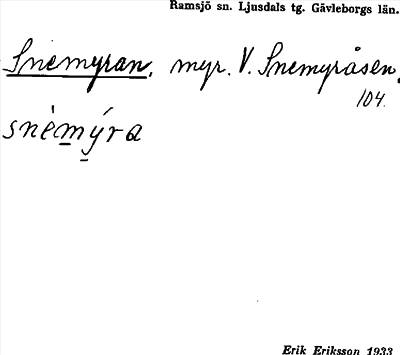 Ramsjö sn. Ljusdals tg. Gävleborgs län.
Snemyran, myr. V. Snemyråsen.
104.
snèmýra
Erik Eriksson 1933